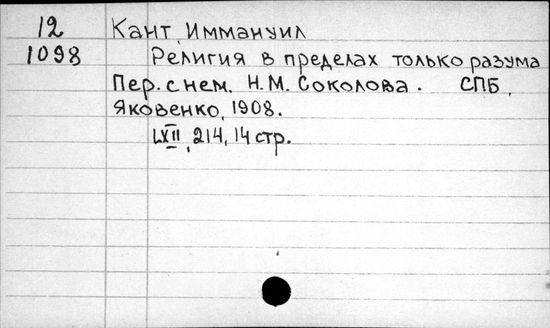 12 Кант, Иммануил
1098 Религия в пределах только разума
Пер. с нем. Н.М. Соколова. СПБ,
Яковенко, 1908.
LXII, 214, 14 стр.